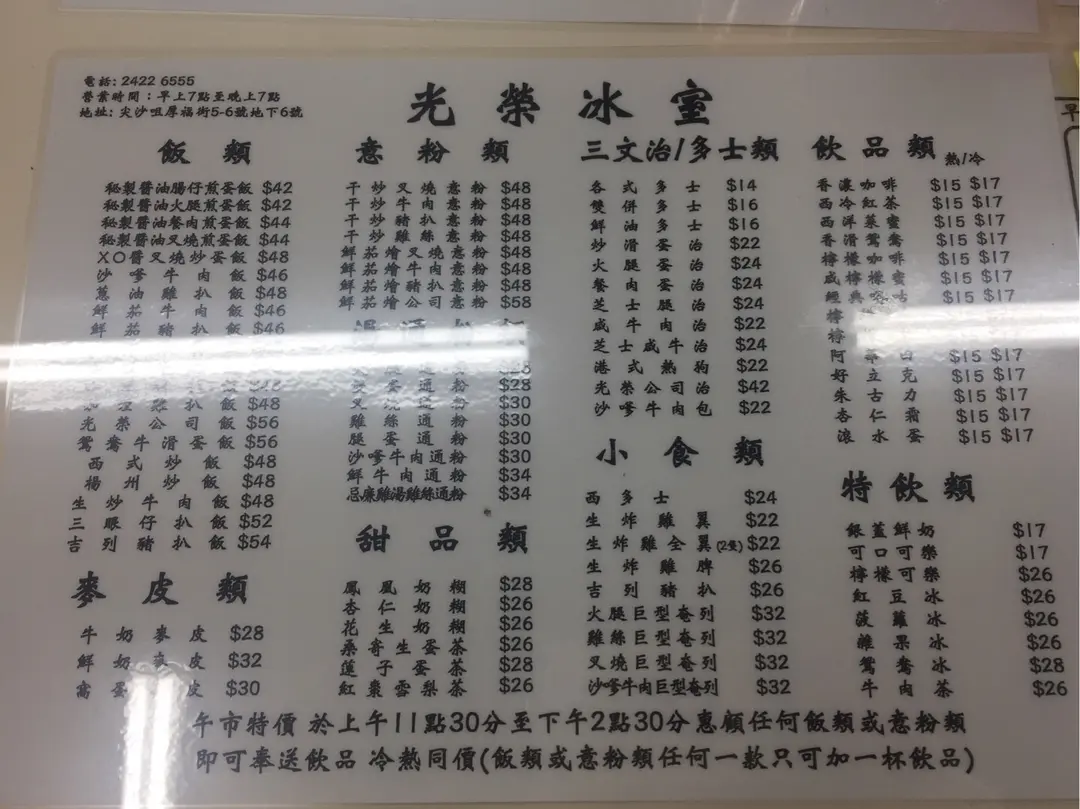 電話: 2422 6555
營業時間：早上7點至晚上7點
地址: 尖沙咀厚福街5-6號地下6號
光榮冰室
飯類
秘製醬油腸仔煎蛋飯 $42
秘製醬油火腿煎蛋飯 $42
秘製醬油餐肉煎蛋飯 $44
秘製醬油叉燒煎蛋飯 $44
XO醬叉燒炒蛋飯 $48
沙嗲牛肉飯 $46
蔥油雞扒飯 $48
鮮茄牛肉飯 $46
鮮茄豬扒飯 $46
扒飯 $48
光榮公司飯 $56
鴛鴦牛滑蛋飯 $56
西式炒飯 $48
揚州炒飯 $48
生炒牛肉飯 $48
三眼仔扒飯 $52
吉列豬扒飯 $54
麥皮類
牛奶麥皮 $28
鮮奶麥皮 $32
窩蛋 皮 $30
意粉類
干炒叉燒意粉 $48
干炒牛肉意粉 $48
干炒豬扒意粉 $48
干炒雞絲意粉 $48
鮮茄燴叉燒意粉 $48
鮮茄燴牛肉意粉 $48
鮮茄燴豬扒意粉 $48
鮮茄燴公司意粉 $58
蛋通粉 $28
叉燒通粉 $30
雞絲通粉 $30
腿蛋通粉 $30
沙嗲牛肉通粉 $30
鮮牛肉通粉 $34
忌廉雞湯雞絲通粉 $34
甜品類
鳳凰奶糊 $28
杏仁奶糊 $26
花生奶糊 $26
桑寄生蛋茶 $26
蓮子蛋茶 $28
紅棗雪梨茶 $26
三文治/多士類
各式多士 $14
雙併多士 $16
鮮油多士 $16
炒滑蛋治 $22
火腿蛋治 $24
餐肉蛋治 $24
芝士腿治 $24
咸牛肉治 $22
芝士咸牛治 $24
港式熱狗 $22
光榮公司治 $42
沙嗲牛肉包 $22
小食類
西多士 $24
生炸雞翼 $22
生炸雞全翼(2隻) $22
生炸雞脾 $26
吉列豬扒 $26
火腿巨型奄列 $32
雞絲巨型奄列 $32
叉燒巨型奄列 $32
沙嗲牛肉巨型奄列 $32
飲品類 熱/冷
香濃咖啡 $15 $17
西冷紅茶 $15 $17
西洋菜蜜 $15 $17
香滑鴛鴦 $15 $17
檸檬咖啡 $15 $17
咸檸檬蜜 $15 $17
經典 咕 $15 $17
檸
檸
阿華田 $15 $17
好立克 $15 $17
朱古力 $15 $17
杏仁霜 $15 $17
滾水蛋 $15 $17
特飲類
銀蓋鮮奶 $17
可口可樂 $17
檸檬可樂 $26
紅豆冰 $26
菠蘿冰 $26
雜果冰 $26
鴛鴦冰 $28
牛肉茶 $26
午市特價 於上午11點30分至下午2點30分惠顧任何飯類或意粉類
即可奉送飲品 冷熱同價(飯類或意粉類任何一款只可加一杯飲品)